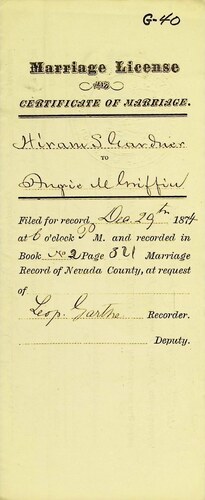 G-40
Marriage License
AND
CERTIFICATE OF MARRIAGE.
Hiram S. Gardner
TO
Angie M Griffin
Filed for record Dec. 29th 1874
at 6 o'clock P M. and recorded in
Book No 2 Page 321 Marriage
Record of Nevada County, at request
of
Leop. Garthe Recorder.
Deputy.